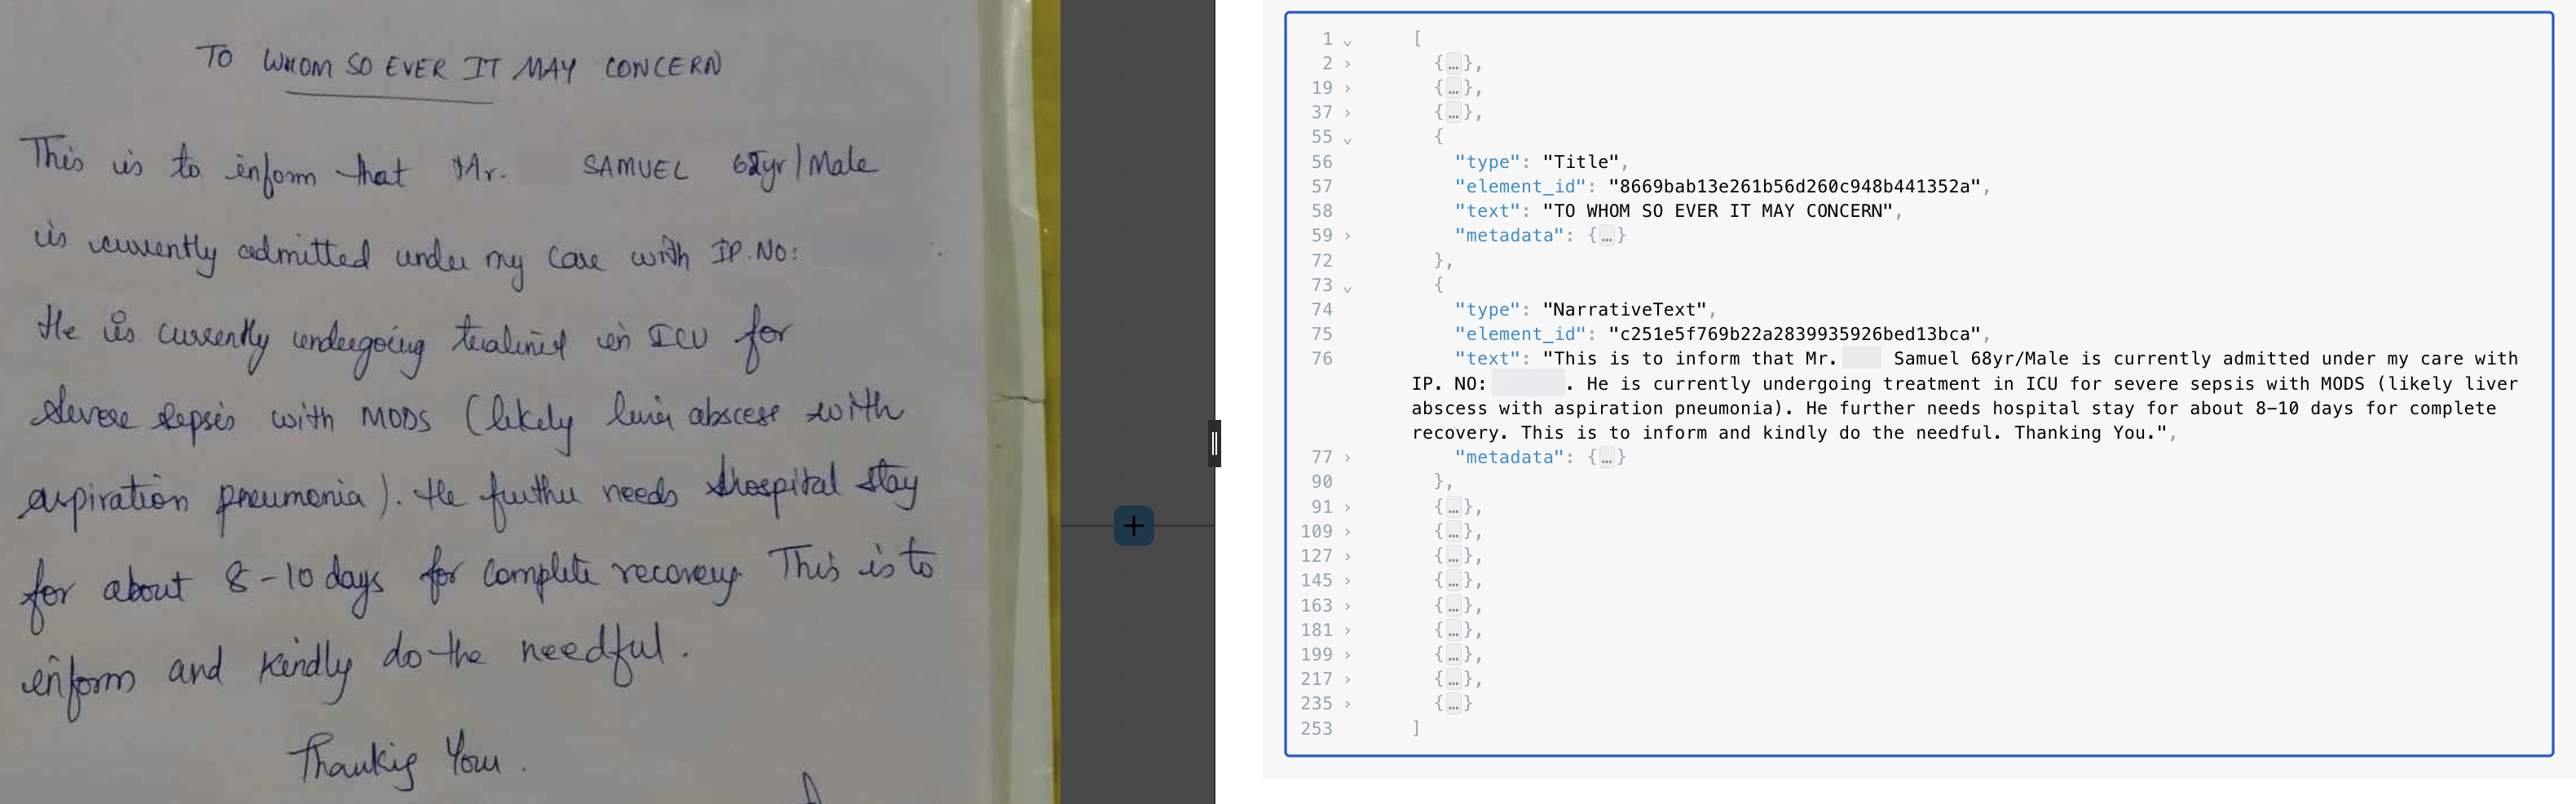 TO WHOM SO EVER IT MAY CONCERN
This is to inform that Mr. SAMUEL yr/Male
is currently admitted under my care with IP.NO:
He is currently undergoing in ICU for
severe sepsis with MODS (likely liver abscess with
aspiration pneumonia). He further needs hospital stay
for about 8-10 days for complete recovery. This is to
inform and kindly do the needful.
Thanking You.
1 [
2 {…},
19 {…},
37 {…},
55 {
56 "type": "Title",
57 "element_id": "8669bab13e261b56d260c948b441352a",
58 "text": "TO WHOM SO EVER IT MAY CONCERN",
59 "metadata": {…}
72 },
73 {
74 "type": "NarrativeText",
75 "element_id": "c251e5f769b22a2839935926bed13bca",
76 "text": "This is to inform that Mr. Samuel 68yr/Male is currently admitted under my care with
IP. NO: . He is currently undergoing treatment in ICU for severe sepsis with MODS (likely liver
abscess with aspiration pneumonia). He further needs hospital stay for about 8–10 days for complete
recovery. This is to inform and kindly do the needful. Thanking You.",
77 "metadata": {…}
90 },
91 {…},
109 {…},
127 {…},
145 {…},
163 {…},
181 {…},
199 {…},
217 {…},
235 {…}
253 ]